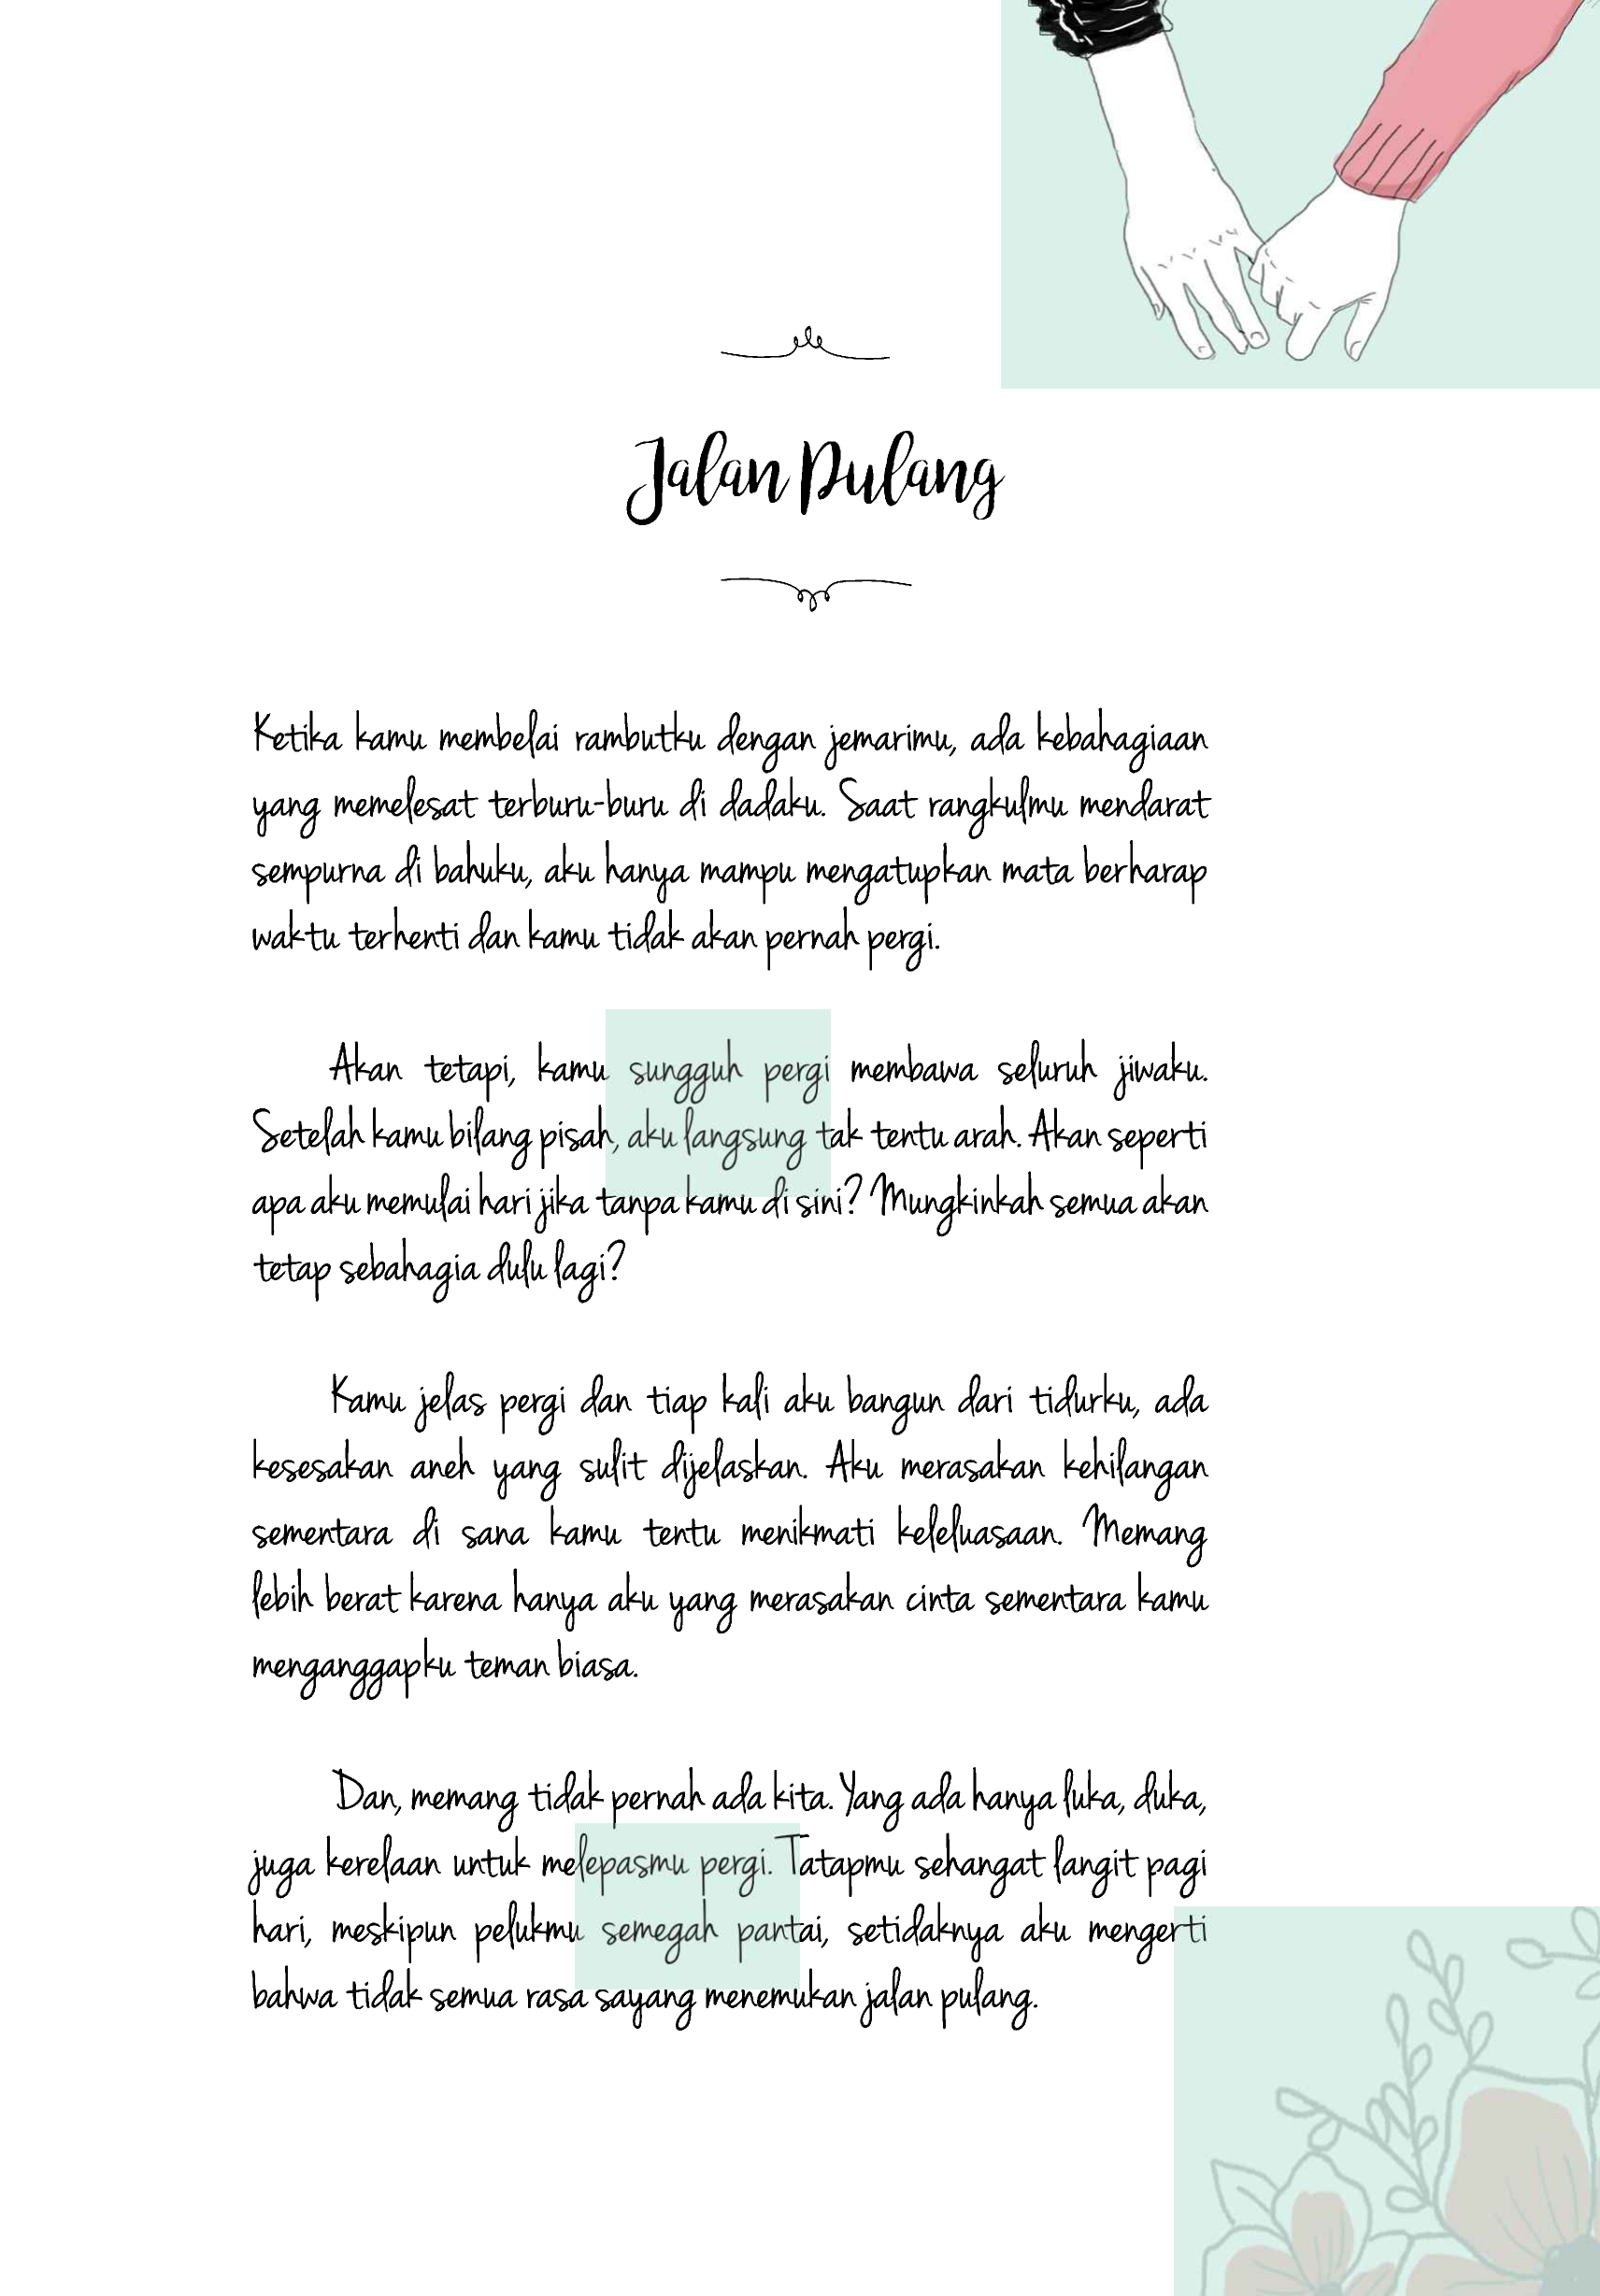 Jalan Pulang
Ketika kamu membelai rambutku dengan jemarimu, ada kebahagiaan
yang memelesat terburu-buru di dadaku. Saat rangkulmu mendarat
sempurna di bahuku, aku hanya mampu mengatupkan mata berharap
waktu terhenti dan kamu tidak akan pernah pergi.
Akan tetapi, kamu sungguh pergi membawa seluruh jiwaku.
Setelah kamu bilang pisah, aku langsung tak tentu arah. Akan seperti
apa aku memulai hari jika tanpa kamu di sini? Mungkinkah semua akan
tetap sebahagia dulu lagi?
Kamu jelas pergi dan tiap kali aku bangun dari tidurku, ada
kesesakan aneh yang sulit dijelaskan. Aku merasakan kehilangan
sementara di sana kamu tentu menikmati keleluasaan. Memang
lebih berat karena hanya aku yang merasakan cinta sementara kamu
menganggapku teman biasa.
Dan, memang tidak pernah ada kita. Yang ada hanya luka, duka,
juga kerelaan untuk melepasmu pergi. Tatapmu sehangat langit pagi
hari, meskipun pelukmu semegah pantai, setidaknya aku mengerti
bahwa tidak semua rasa sayang menemukan jalan pulang.